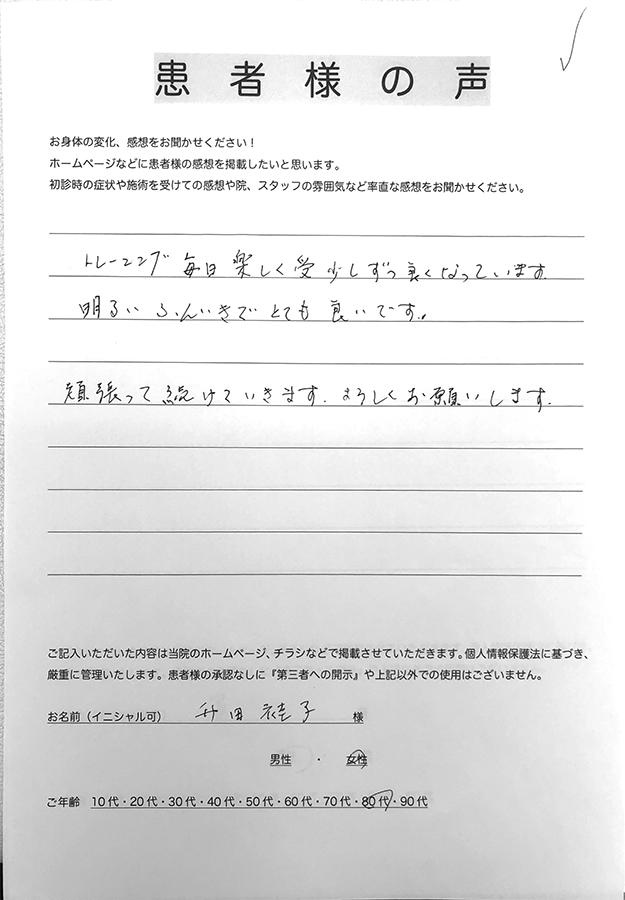 患者様の声
お身体の変化、感想をお聞かせください!
ホームページなどに患者様の感想を掲載したいと思います。
初診時の症状や施術を受けての感想や院、スタッフの雰囲気など率直な感想をお聞かせください。
トレーニング 毎日 楽しく 受 少しずつ 良くなっています.
明るい ふんいきで とても 良いです.
頑張って 続けていきます. よろしくお願いします.
ご記入いただいた内容は当院のホームページ、チラシなどで掲載させていただきます。個人情報保護法に基づき、
厳重に管理いたします。患者様の承認なしに『第三者への開示』や上記以外での使用はございません。
お名前（イニシャル可） 升田 子 様
男性 ・ 女性
ご年齢 10代・20代・30代・40代・50代・60代・70代・80代・90代